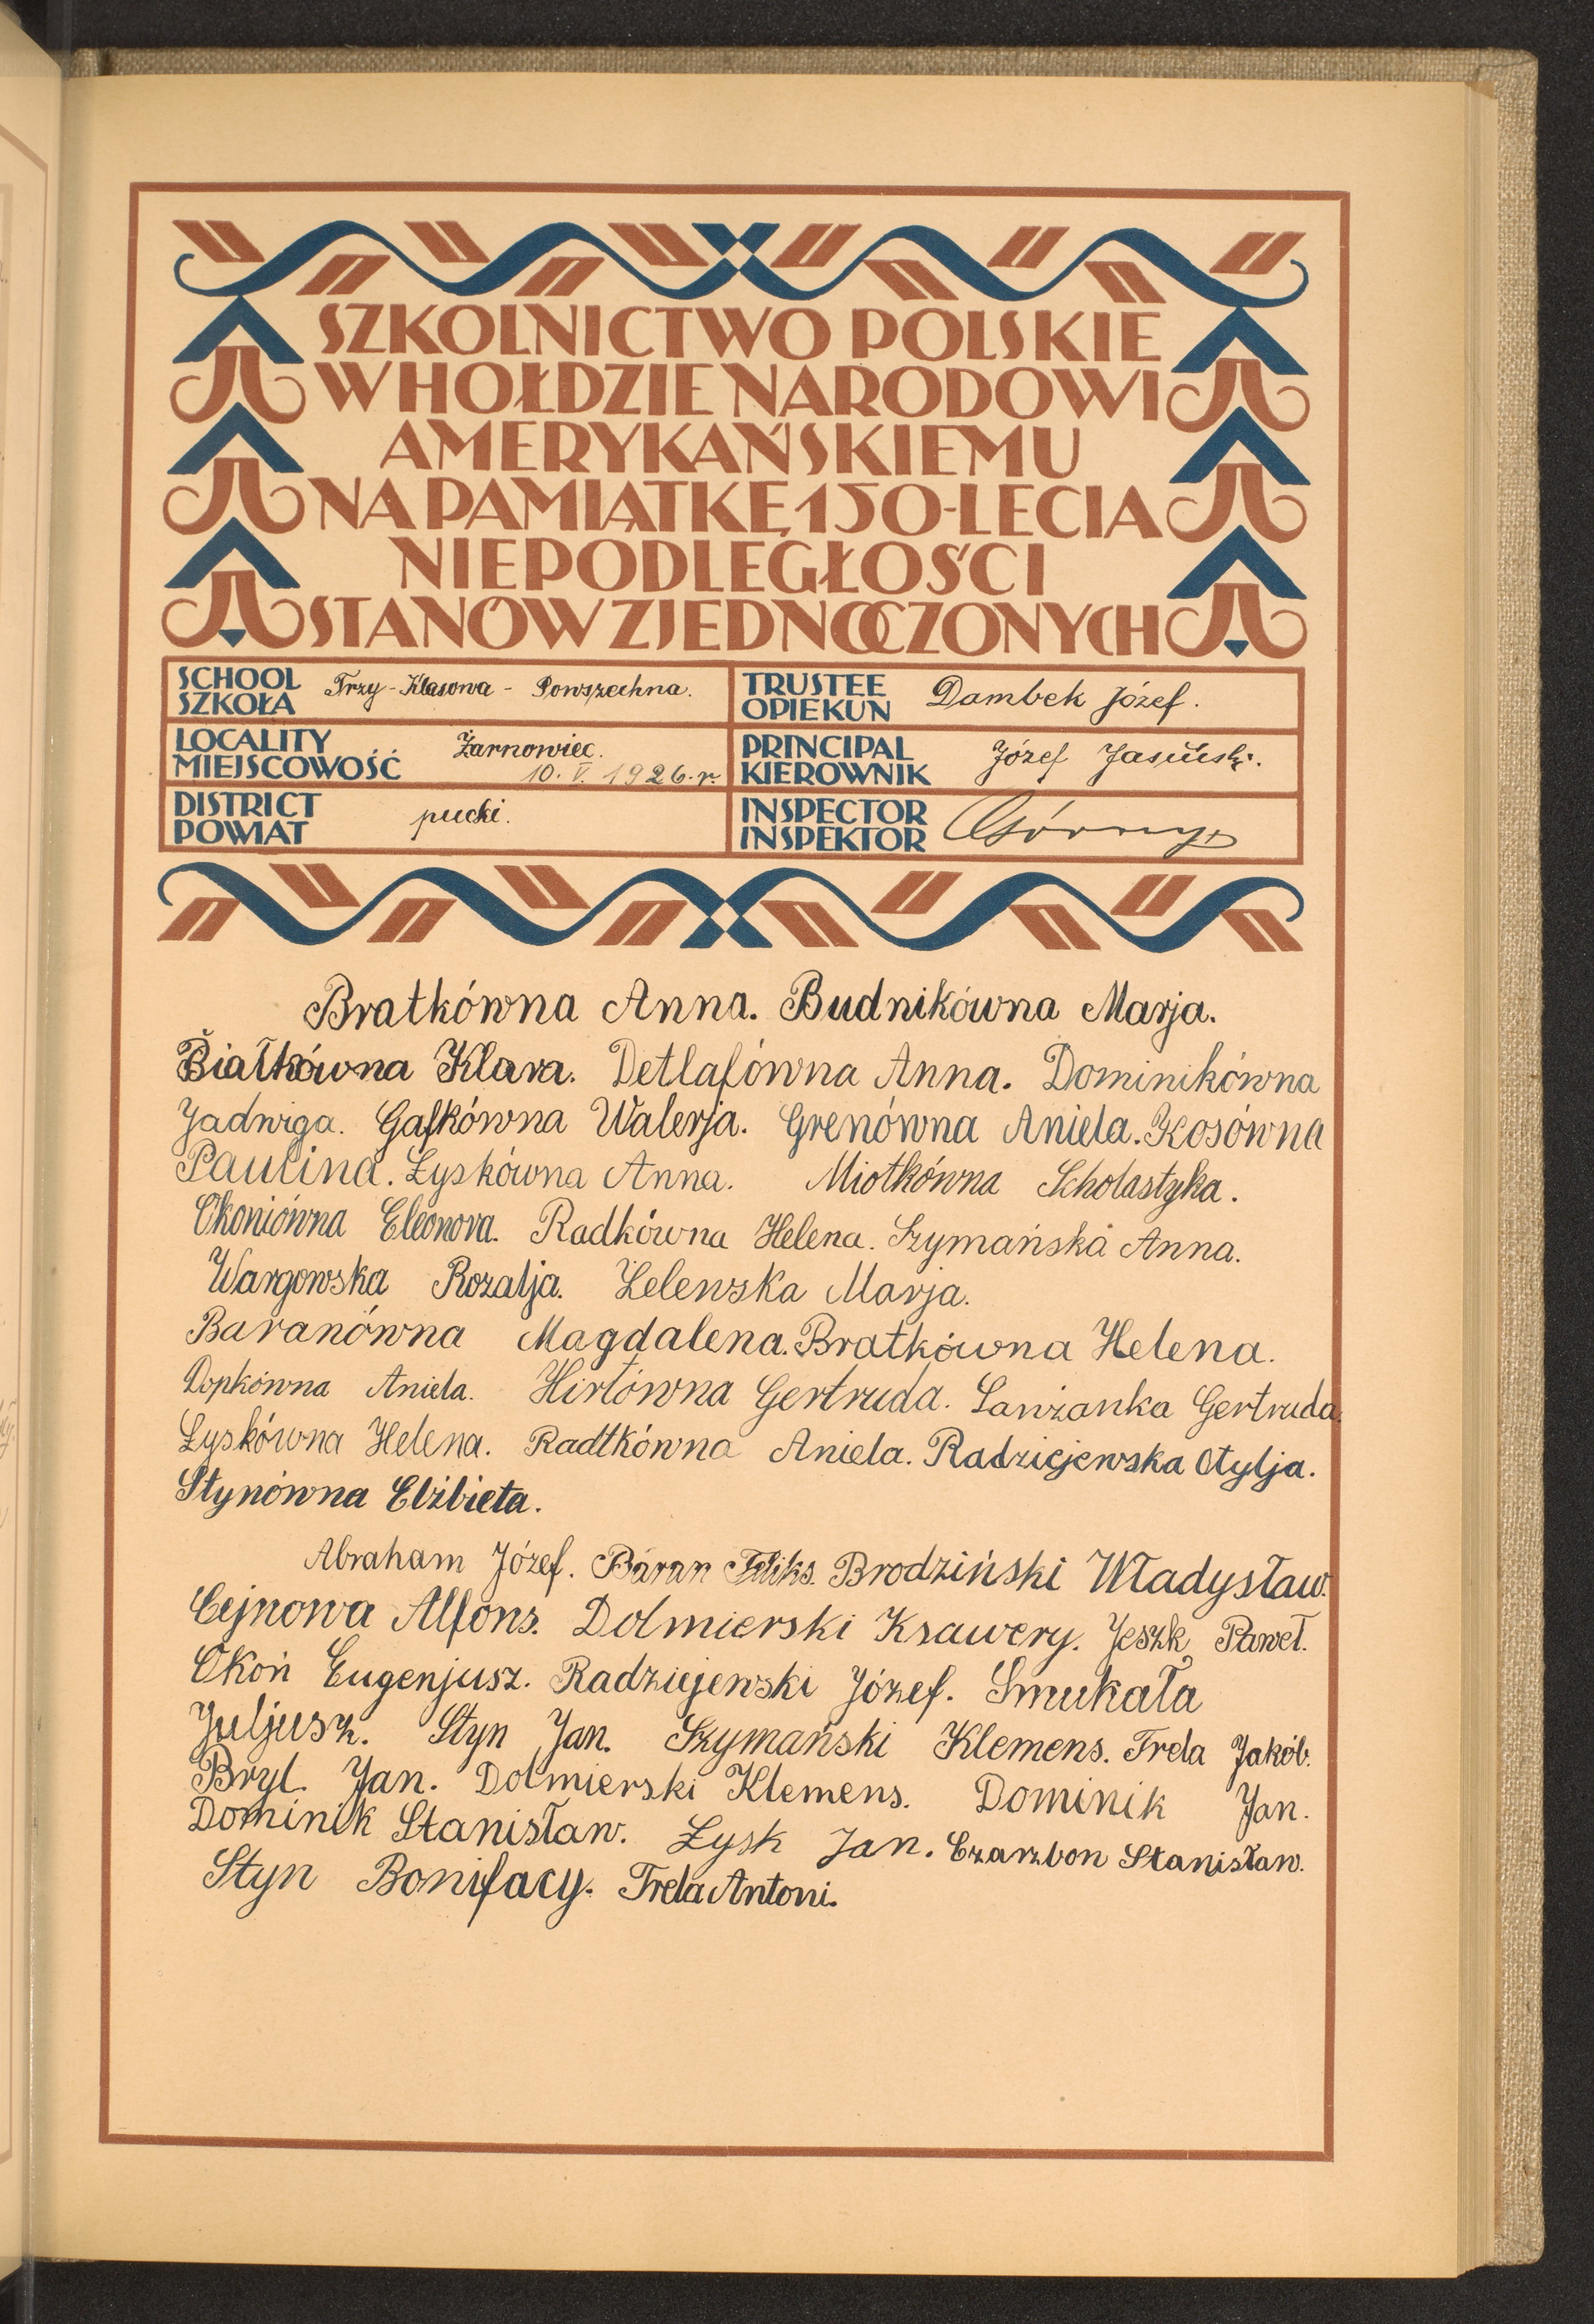 SZKOLNICTWO POLSKIE
W HOŁDZIE NARODOWI
AMERYKAŃSKIEMU
NA PAMIĄTKĘ 150-LECIA
NIEPODLEGŁOŚCI
STANÓW ZJEDNOCZONYCH
SCHOOL
SZKOŁA
Trzy-Klasowa - Powszechna.
TRUSTEE
OPIEKUN
Dambek Józef.
LOCALITY
MIEJSCOWOŚĆ
Żarnowiec.
10. V. 1926. r.
PRINCIPAL
KIEROWNIK
Józef Jasiński.
DISTRICT
POWIAT
pucki.
INSPECTOR
INSPEKTOR
Górny
Bratkówna Anna. Budnikówna Marja.
Białkówna Klara. Detlafówna Anna. Dominikówna
Jadwiga. Gafkówna Walerja. Grenówna Aniela. Kosówna
Paulina. Łyskówna Anna. Miotkówna Scholastyka.
Okoniówna Eleonora. Radkówna Helena. Szymańska Anna.
Wargowska Rozalja. Zelewska Marja.
Baranówna Magdalena. Bratkówna Helena.
Dopkówna Aniela. Hirtówna Gertruda. Lawżanka Gertruda.
Łyskówna Helena. Radtkówna Aniela. Radziejewska Otylja.
Stynówna Elżbieta.
Abraham Józef. Baran Feliks. Brodziński Władysław.
Cejnowa Alfons. Dolmierski Ksawery. Jeszk Paweł.
Okoń Eugenjusz. Radziejewski Józef. Smukała
Juljusz. Styn Jan. Szymański Klemens. Trela Jakób.
Bryl. Jan. Dolmierski Klemens. Dominik Jan.
Dominik Stanisław. Łysk Jan. Czarzbon Stanisław.
Styn Bonifacy. Trela Antoni.